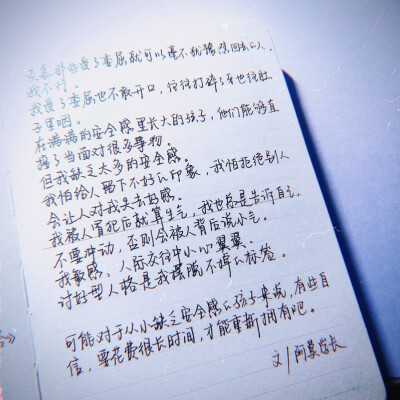 羡慕那些受了委屈就可以毫不犹豫怼回去的人。
我不行。
我受了委屈也不敢开口，往往打碎了牙也往肚
子里咽。
在满满的安全感里长大的孩子，他们能够直
接了当面对很多事物。
但我缺乏太多的安全感。
我怕给人留下不好的印象，我怕拒绝别人
会让人对我失去好感。
我被人冒犯后就算生气，我也总是告诉自己，
不要冲动，否则会被人背后说小气。
我敏感，人际交往中小心翼翼。
讨好型人格是我摆脱不掉的标签。
可能对于从小缺乏安全感的孩子来说，有些自
信，要花费很长时间，才能重新拥有吧。
文/阿慕学长